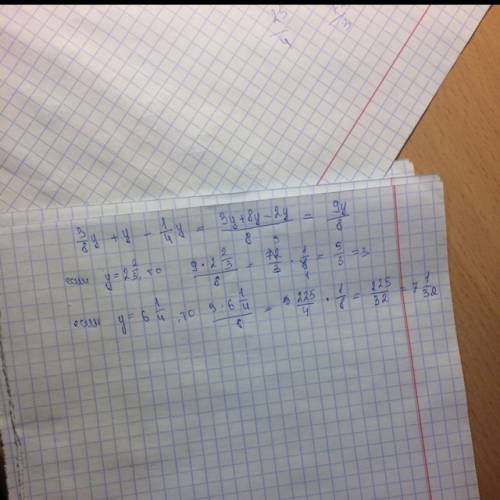 3/8 y + y - 1/4 y = (3y+8y-2y)/8 = 9y/8
если y=2 2/3, то (9·2 2/3)/8 = 72/3 · 1/8 = 9/3 = 3
если y=6 1/4, то (9·6 1/4)/8 = 225/4 · 1/8 = 225/32 = 7 1/32